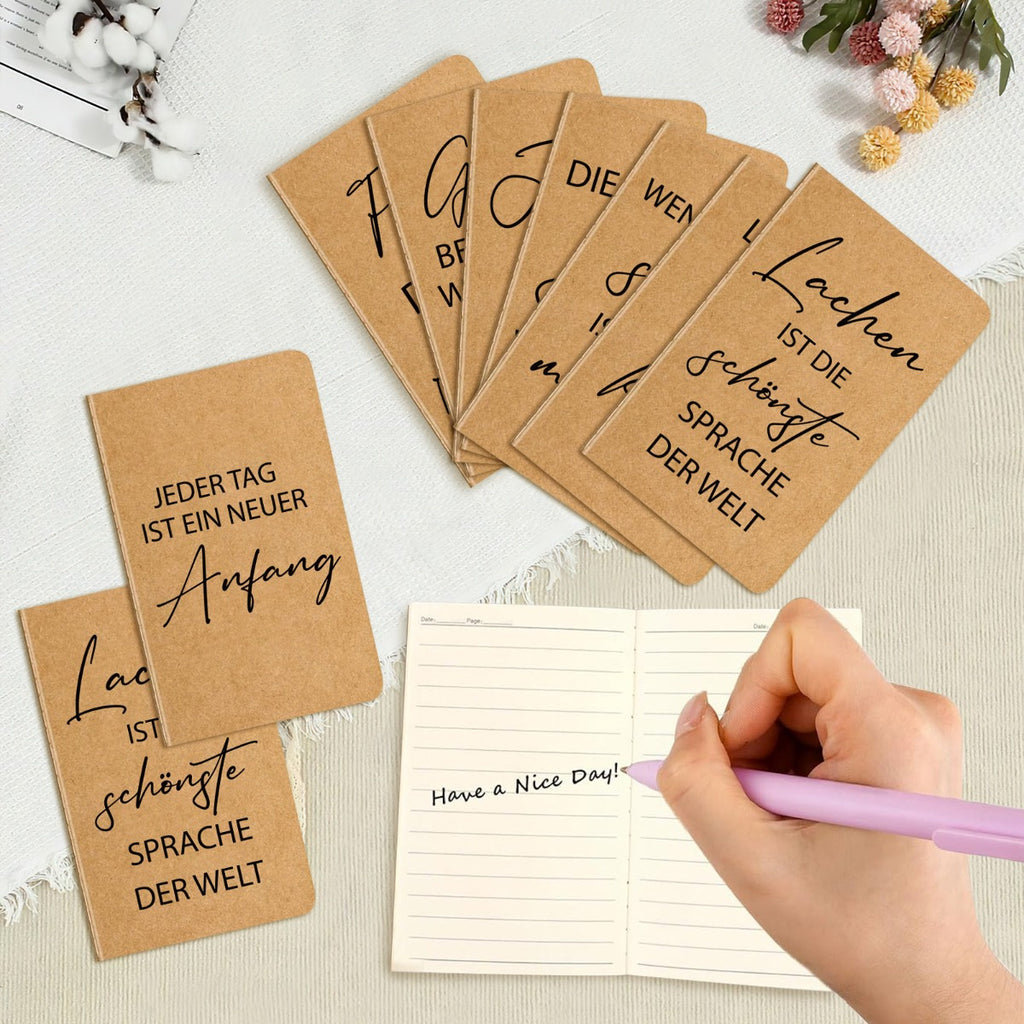 DIE
WEN
Lachen
IST DIE
schönste
SPRACHE
DER WELT
JEDER TAG
IST EIN NEUER
Anfang
IST
schönste
SPRACHE
DER WELT
Date: Page:
Date:
Have a Nice Day!